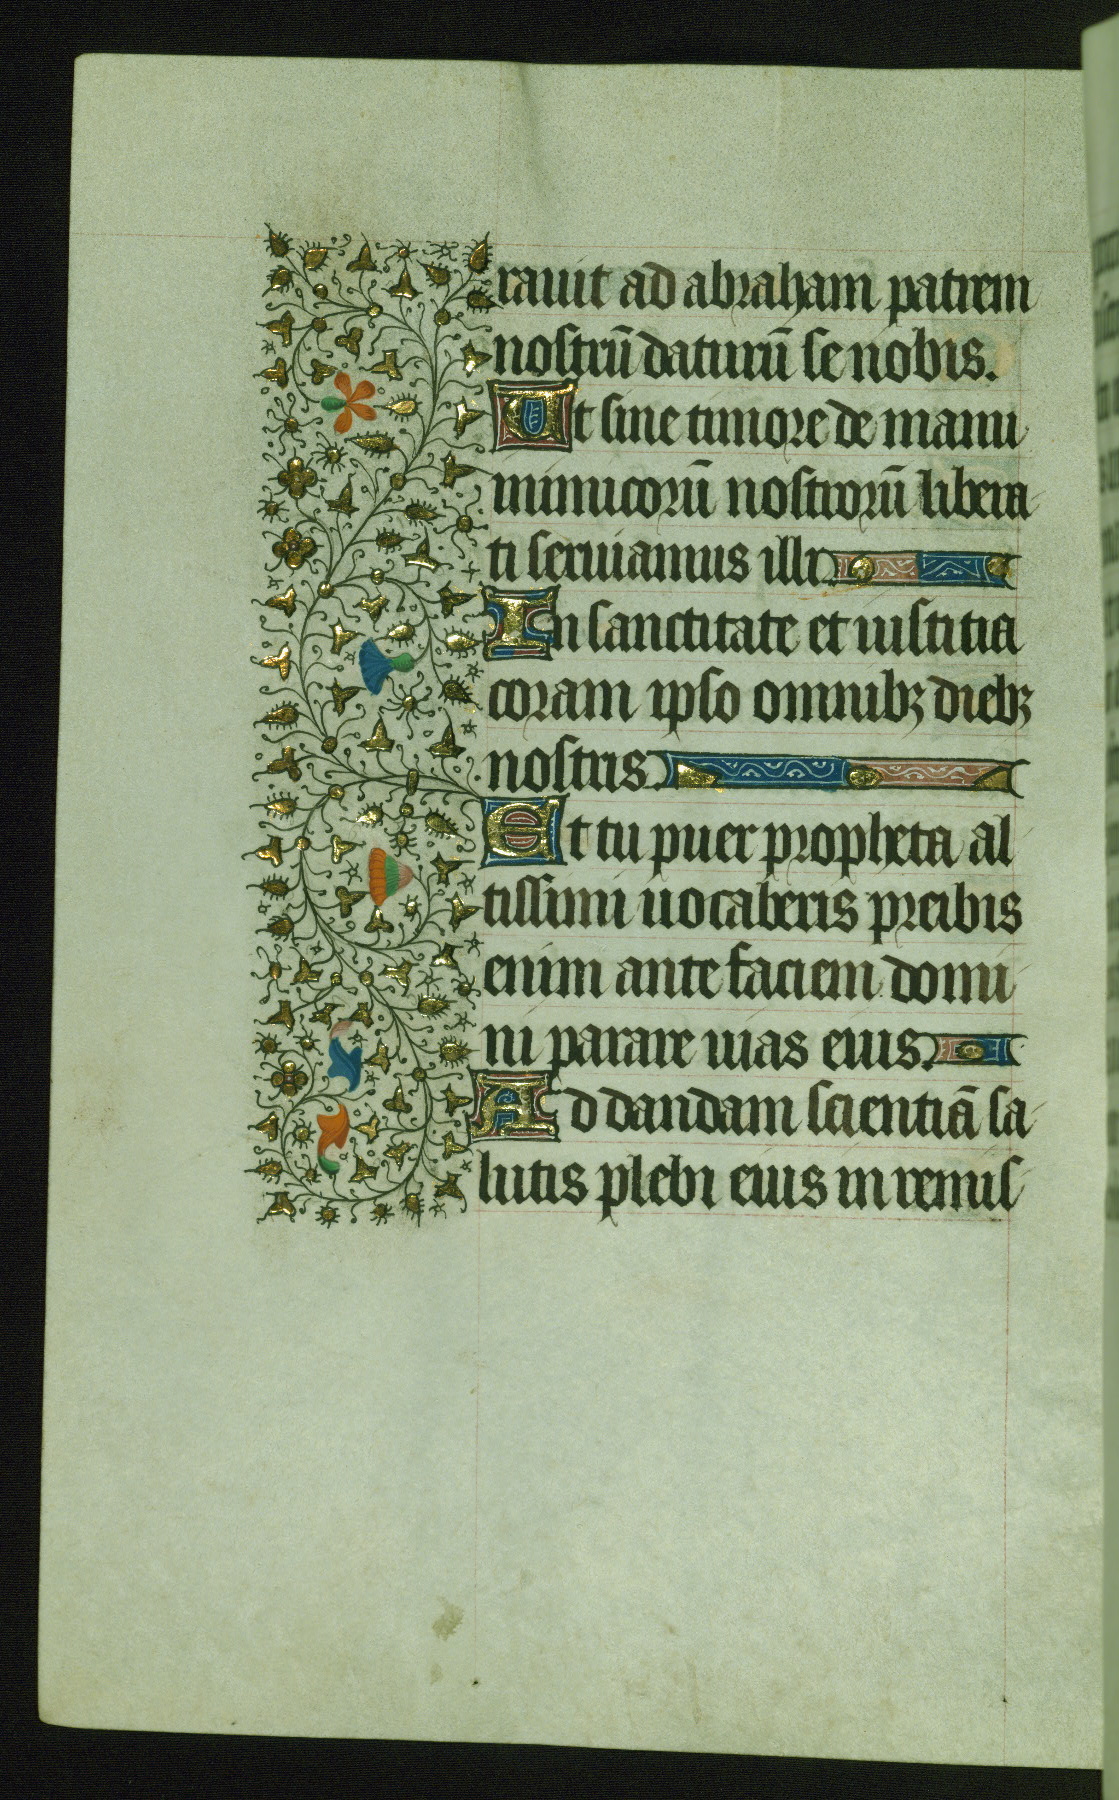 rauit ad abraham patrem
nostrū daturū se nobis.
Ut sine timore de manu
inimicorū nostrorū libera
ti seruiamus illi
In sanctitate et iustitia
coram ipso omnibꝫ diebꝫ
nostris
Et tu puer propheta al
tissimi uocaberis preibis
enim ante faciem domi
ni parare uias eius
Ad dandam scientiā sa
lutis plebi eius in remis